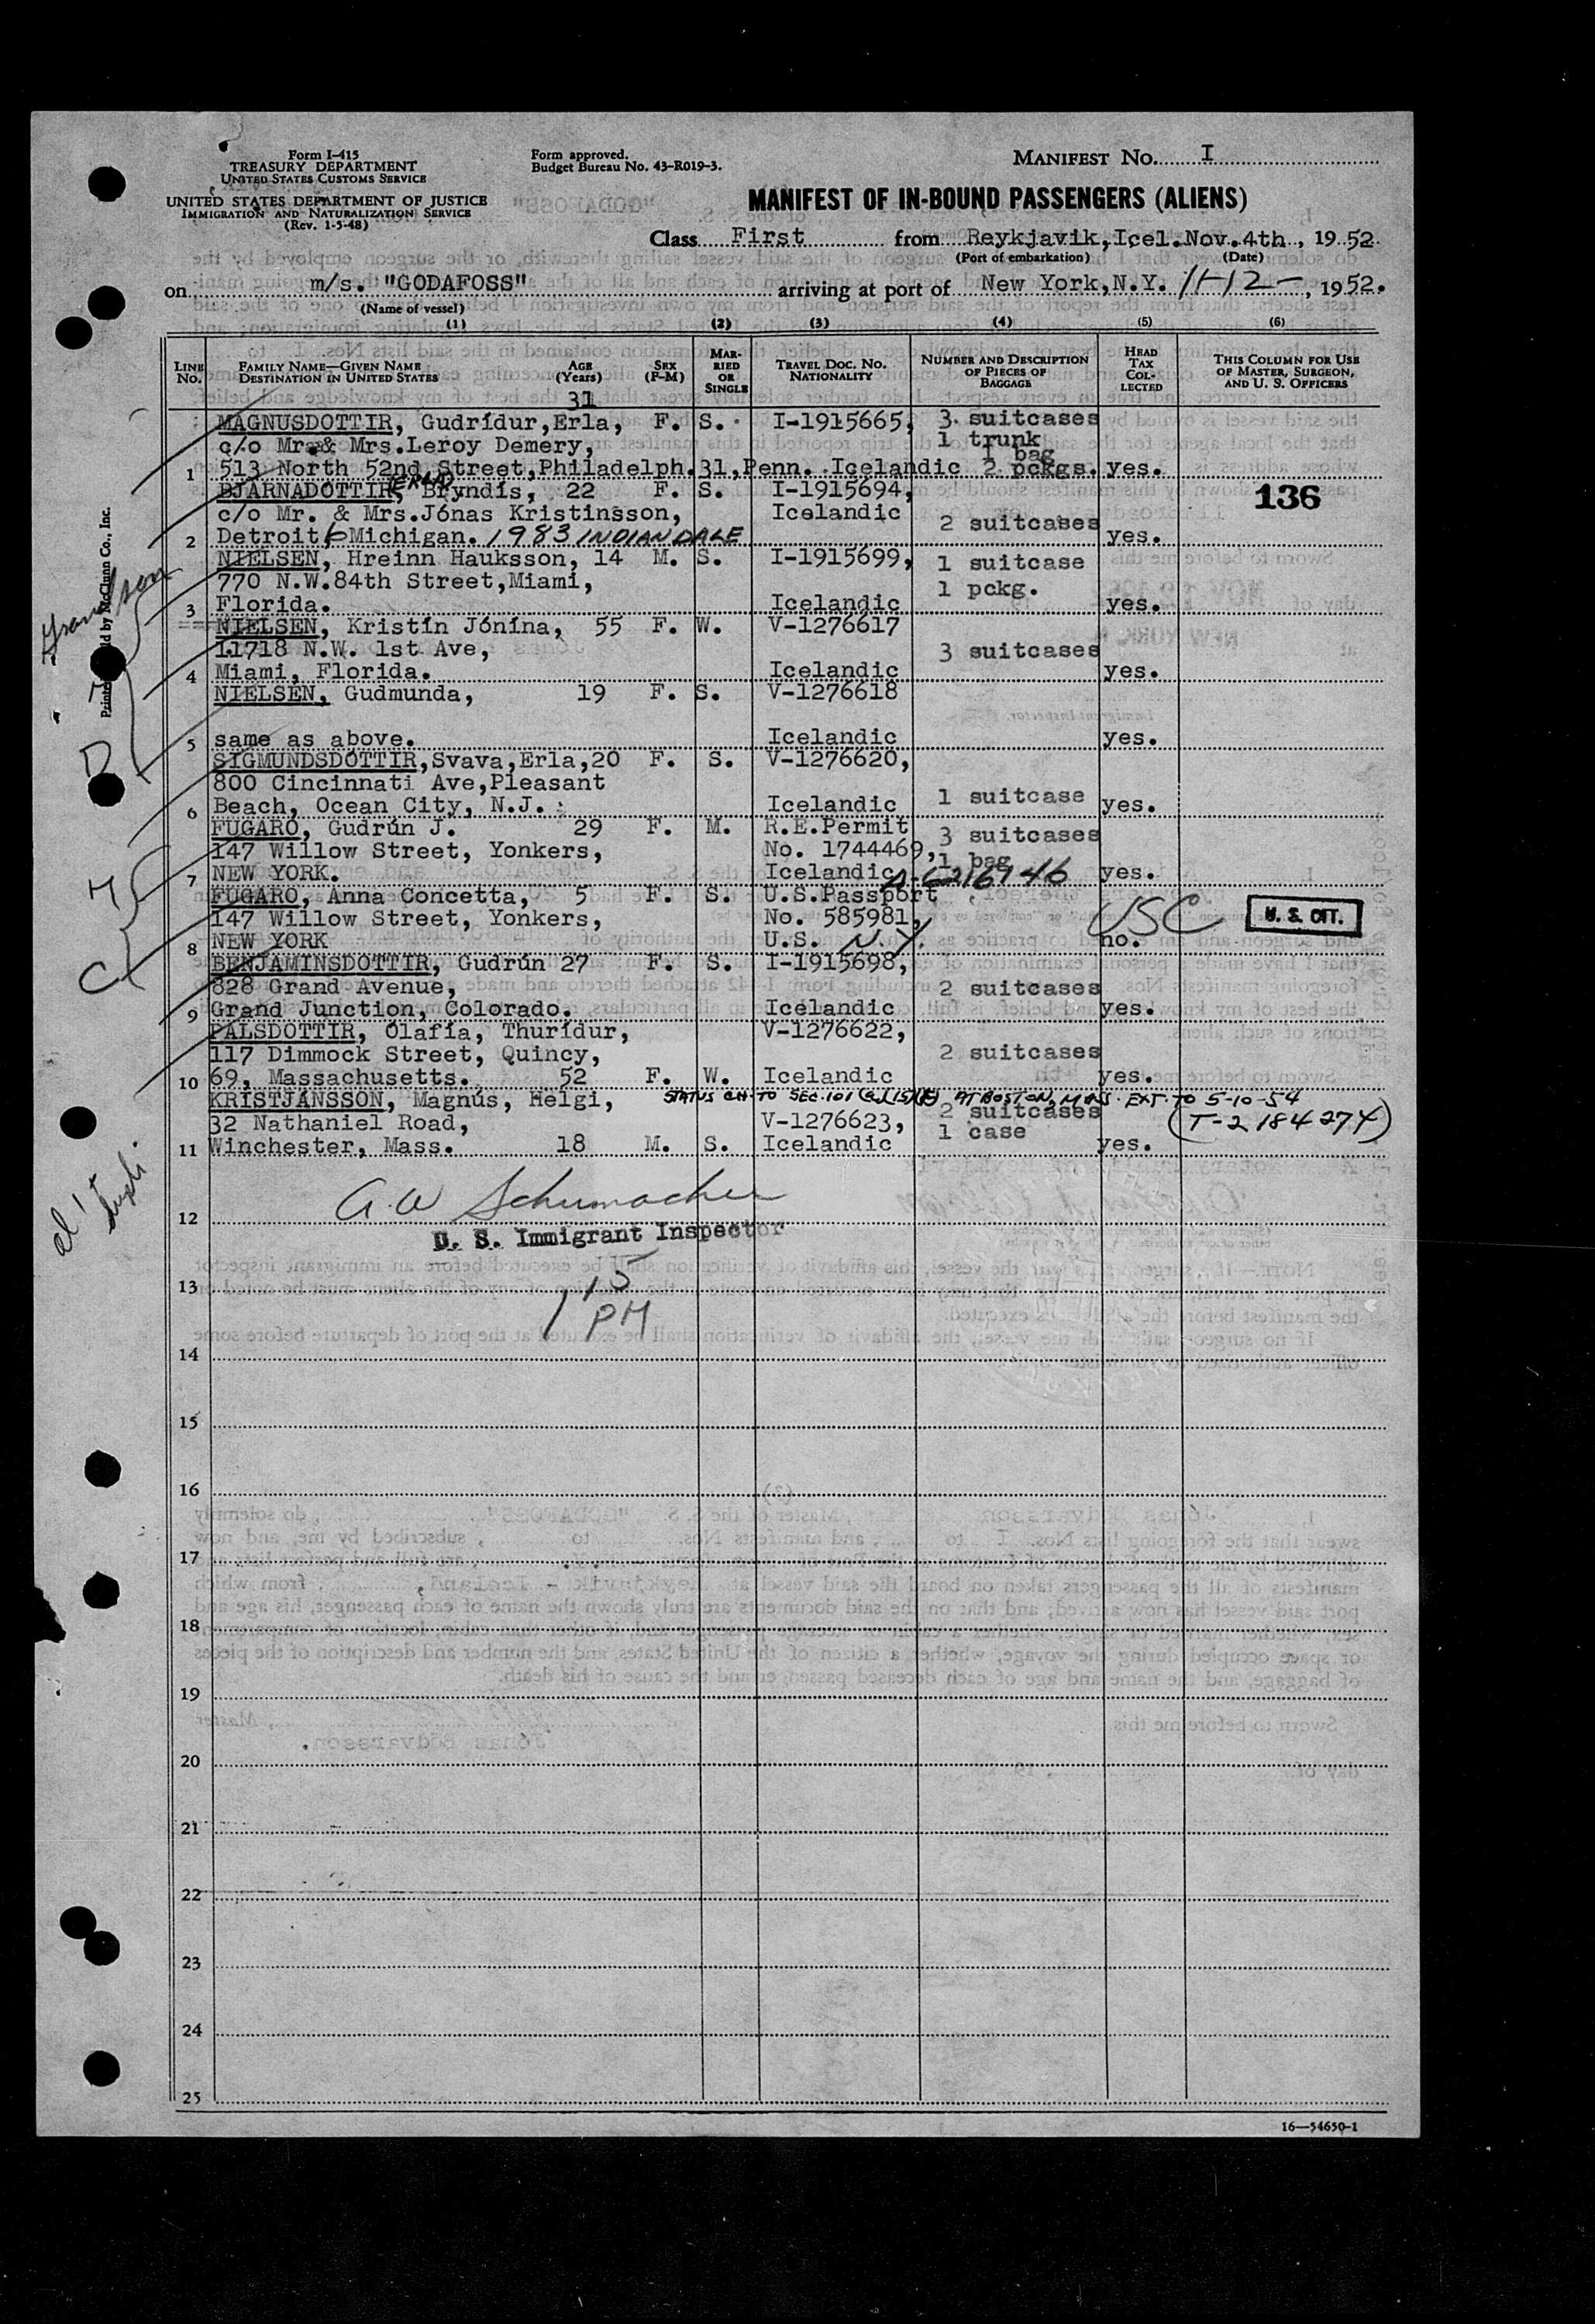 Form I-415
TREASURY DEPARTMENT
UNITED STATES CUSTOMS SERVICE
UNITED STATES DEPARTMENT OF JUSTICE
IMMIGRATION AND NATURALIZATION SERVICE
(Rev. 1-5-48)
Form approved.
Budget Bureau No. 43-R019-3.
MANIFEST NO. I
MANIFEST OF IN-BOUND PASSENGERS (ALIENS)
Class First from Reykjavik, Icel. Nov. 4th, 1952.
(Port of embarkation) (Date)
on m/s. "GODAFOSS" arriving at port of New York, N.Y. 11-12-, 1952.
(Name of vessel)
(1) (2) (3) (4) (5) (6)
LINE NO. FAMILY NAME—GIVEN NAME DESTINATION IN UNITED STATES AGE (Years) SEX (F-M) MARRIED OR SINGLE TRAVEL DOC. NO. NATIONALITY NUMBER AND DESCRIPTION OF PIECES OF BAGGAGE HEAD TAX COLLECTED THIS COLUMN FOR USE OF MASTER, SURGEON, AND U. S. OFFICERS
31
MAGNUSDOTTIR, Gudrídur, Erla, F. S. I-1915665, 3 suitcases
c/o Mr. & Mrs. Leroy Demery, 1 trunk
1 bag
1 513 North 52nd Street, Philadelph. 31, Penn. Icelandic 2 pckgs. yes.
BJARNADOTTIR, (ERLA) Bryndís, 22 F. S. I-1915694,
136
c/o Mr. & Mrs. Jónas Kristinsson, Icelandic 2 suitcases
2 Detroit 6 Michigan. 1983 INDIANDALE yes.
NIELSEN, Hreinn Hauksson, 14 M. S. I-1915699, 1 suitcase
770 N.W. 84th Street, Miami, 1 pckg.
3 Florida. Icelandic yes.
Grandson
NIELSEN, Kristín Jónína, 55 F. W. V-1276617
11718 N.W. 1st Ave, 3 suitcases
4 Miami, Florida. Icelandic yes.
NIELSEN, Gudmunda, 19 F. S. V-1276618
5 same as above. Icelandic yes.
D
SIGMUNDSDÓTTIR, Svava, Erla, 20 F. S. V-1276620,
800 Cincinnati Ave, Pleasant
6 Beach, Ocean City, N.J. Icelandic 1 suitcase yes.
FUGARO, Gudrún J. 29 F. M. R.E.Permit 3 suitcases
147 Willow Street, Yonkers, No. 1744469, 1 bag
7 NEW YORK. Icelandic A-6216946 yes.
M
FUGARO, Anna Concetta, 5 F. S. U.S.Passport
147 Willow Street, Yonkers, No. 585981, USC U. S. CIT.
8 NEW YORK U.S. N.Y. no.
C
BENJAMINSDOTTIR, Gudrún 27 F. S. I-1915698,
828 Grand Avenue, 2 suitcases
9 Grand Junction, Colorado. Icelandic yes.
PÁLSDOTTIR, Ólafía, Thurídur, V-1276622,
117 Dimmock Street, Quincy, 2 suitcases
10 69, Massachusetts. 52 F. W. Icelandic yes.
KRISTJÁNSSON, Magnús, Helgi, STATUS CH. TO SEC. 101 (a)(15)(F) AT BOSTON, MASS. EXT. TO 5-10-54
32 Nathaniel Road, V-1276623, 2 suitcases (T-2184274)
1 case
11 Winchester, Mass. 18 M. S. Icelandic yes.
A. W. Schumacher
12
U. S. Immigrant Inspector
13
1 15 PM
14
15
16
17
18
19
20
21
22
23
24
25
16—54650-1